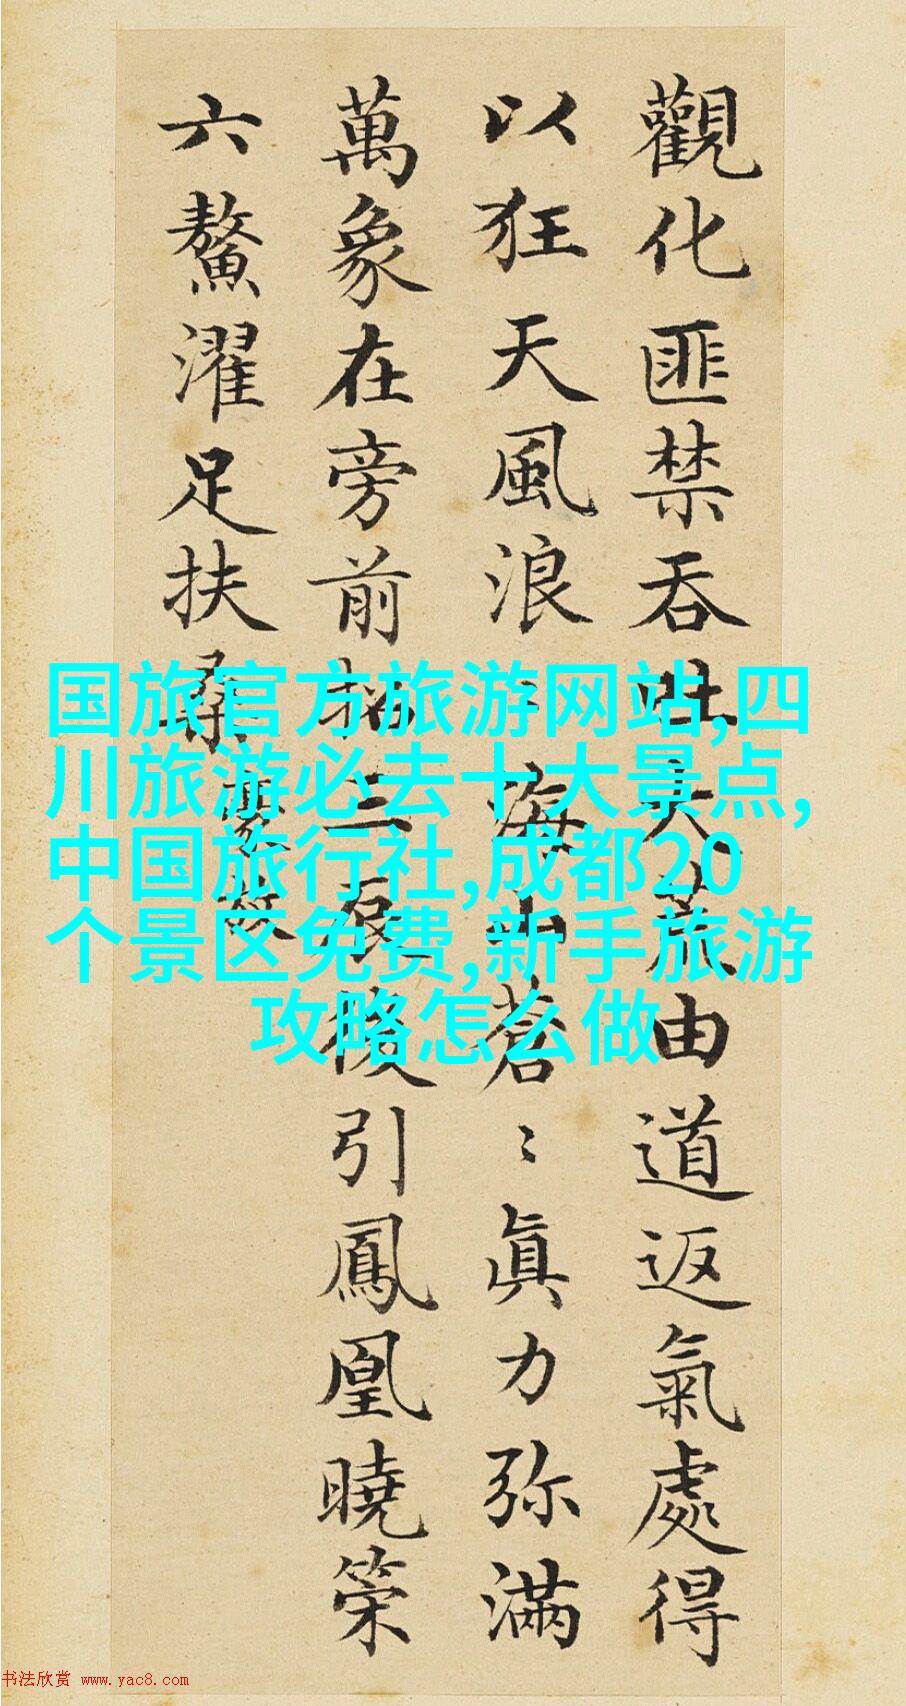 觀化匪禁吞吐大荒由道返氣處得
以狂天風浪〻海山蒼〻眞力弥滿
萬象在旁前招三辰後引鳳凰曉策
六鰲濯足扶桑
豪放
国旅官方旅游网站,四
川旅游必去十大景点,
中国旅行社,成都20
个景区免费,新手旅游
攻略怎么做
书法欣赏 www.yac8.com